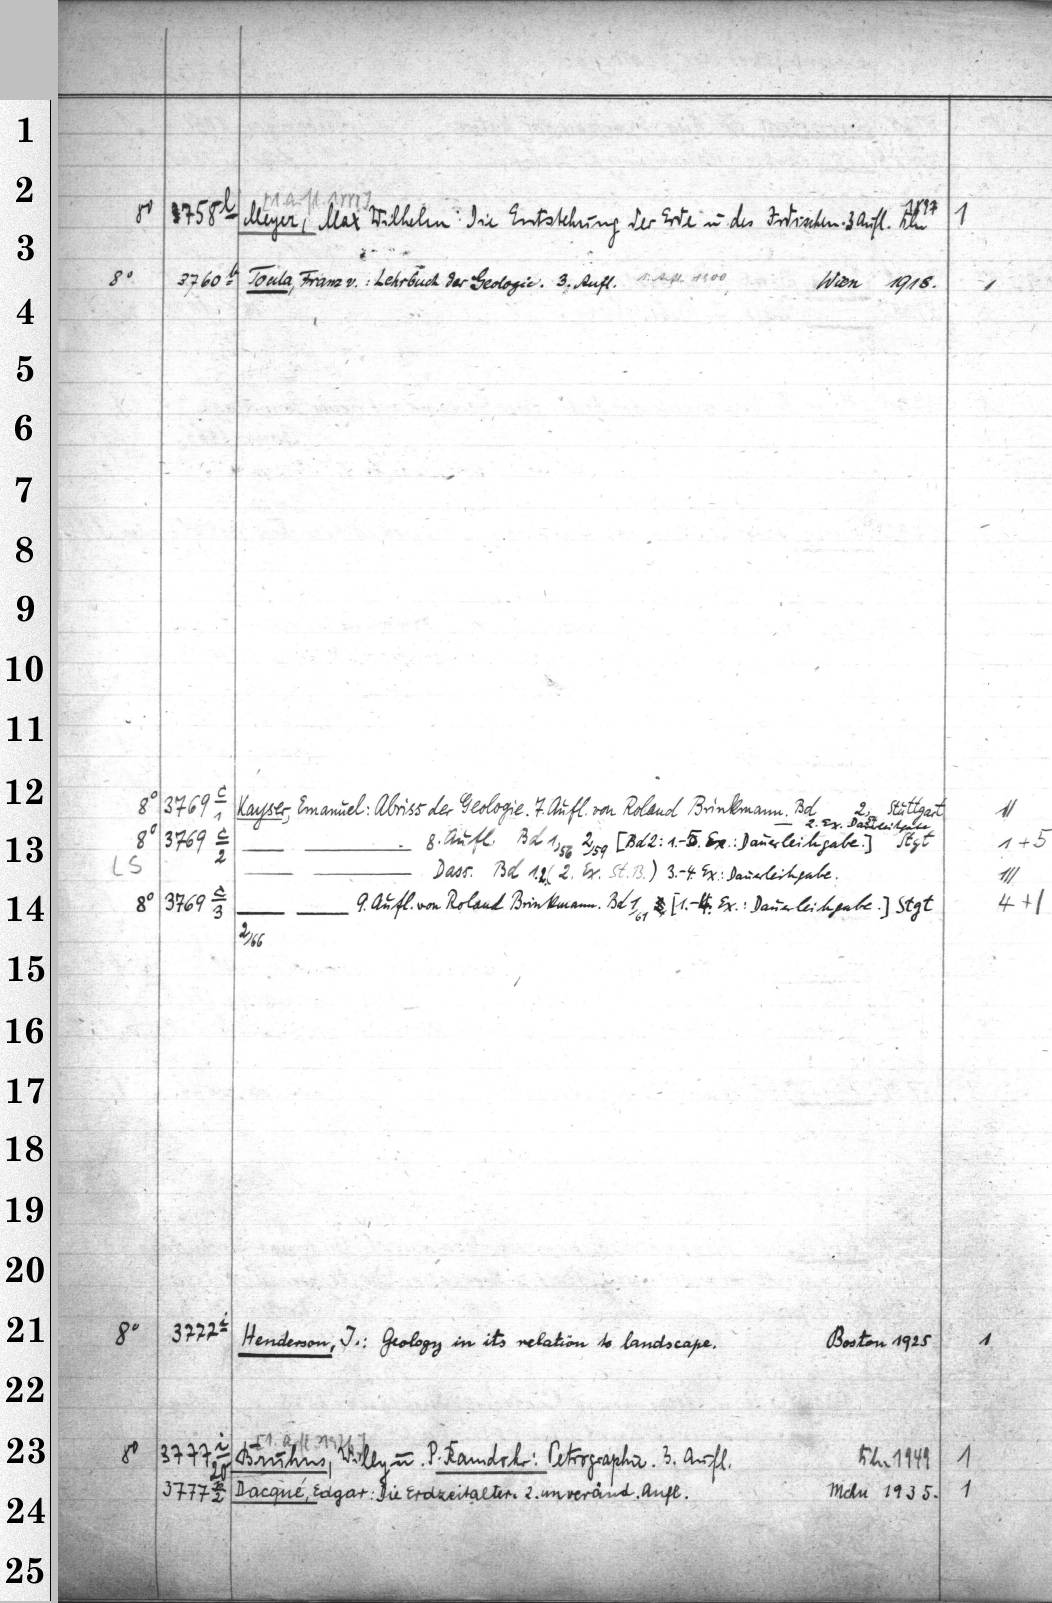 1
2
8° 3758 l Meyer, Max Wilhelm: Die Entstehung der Erde u des Irdischen. 3 Aufl. Bln 1897 1
3
8° 3760 b Toula, Franz v.: Lehrbuch der Geologie. 3. Aufl. 1. Aufl. 1900 Wien 1918. 1
4
5
6
7
8
9
10
11
12
8° 3769 c/1 Kayser, Emanuel: Abriss der Geologie. 7. Aufl. von Roland Brinkmann. Bd 2, Stuttgart II
2. Ex. Dauerleihgabe
13
8° 3769 c/2 8. Aufl. Bd 1/56 2/59 [Bd 2: 1.-5. Ex.: Dauerleihgabe.] Stgt 1+5
LS Dass. Bd 1.2 (2. Ex. St.B.) 3.-4. Ex.: Dauerleihgabe. III
14
8° 3769 c/3 9. Aufl. von Roland Brinkmann. Bd 1/61 [1.-4. Ex.: Dauerleihgabe.] Stgt 4+1
2/66
15
16
17
18
19
20
21
8° 3772 i Henderson, J.: Geology in its relation to landscape. Boston 1925 1
22
23
8° 3777 i/20 Bruhns, Willy u. P. Ramdohr: Petrographie. 3. Aufl. Bln 1949 1
3777 /2 Dacqué, Edgar: Die Erdzeitalter. 2. unveränd. Aufl. Mchn 1935. 1
24
25